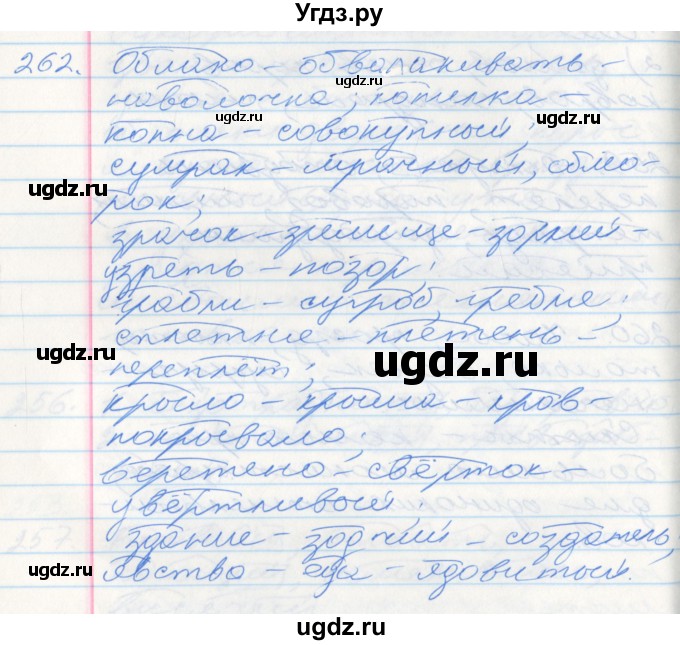 Угдз.ру
262. Облако – обволакивать –
наволочка; копилка –
копна – совокупный;
сумрак – мрачный, обмо-
рок;
зрачок – зрелище – зоркий –
узреть – позор;
грабли – сугроб, гребля;
сплетние – плетень –
переплёт;
крыло – крыша – кров –
покрывало;
веретено – свёрток –
увёртливый
здание – зодчий – создатель;
яство – еда – ядовитый.
ugdz.ru
ugdz.ru
ugdz.ru
ugdz.ru
ugdz.ru
ugdz.ru
ugdz.ru
ugdz.ru
ugdz.ru
ugdz.ru
ugdz.ru